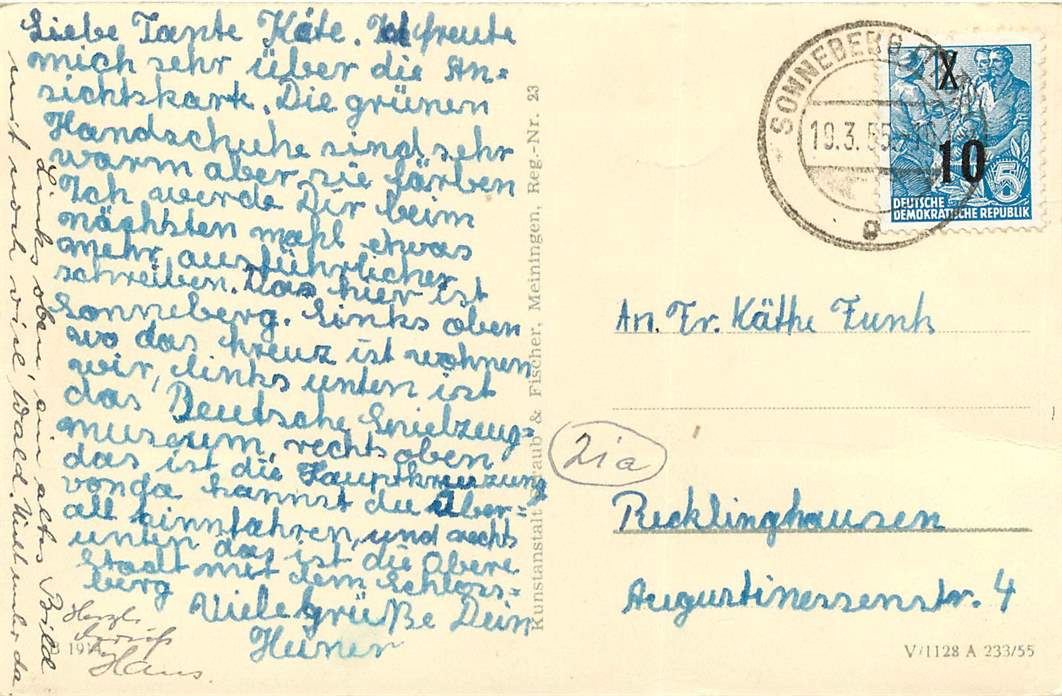 Liebe Tante Käte. Ich freute
mich sehr über die An=
sichtskarte. Die grünen
Handschuhe sind sehr
warm aber sie färben
Ich werde Dir beim
nächsten mahl etwas
mehr ausführlicher
schreiben. Das hier ist
Sonneberg. Links oben
wo das kreuz ist wohnen
wir, links unten ist
das Deutsche Spielzeug=
museum, rechts oben
das ist die Hauptkreuzung
vonda kannst du über=
all hinnfahren, und rechts
unten das ist die Obere
Stadt mit dem Schloss=
berg
Viele grüße Dein
Heiner
Links oben, ein altes Bild
mit noch viel Wald. Mittlerweile da
Herzl.
Gruß
Hans.
Kunstanstalt Straub & Fischer, Meiningen, Reg.-Nr. 23
SONNEBERG
19.3.55
X
10
5
DEUTSCHE
DEMOKRATISCHE REPUBLIK
a
An. Fr. Käthe Funk
21a
Recklinghausen
Augustinessenstr. 4
V/1128 A 233/55